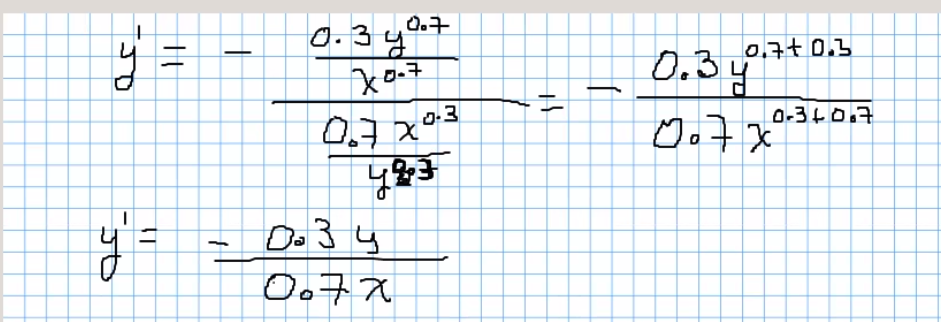 y' = - \frac{\frac{0.3 y^{0.7}}{x^{0.7}}}{\frac{0.7 x^{0.3}}{y^{0.3}}} = - \frac{0.3 y^{0.7+0.3}}{0.7 x^{0.3+0.7}}
y' = - \frac{0.3 y}{0.7 x}